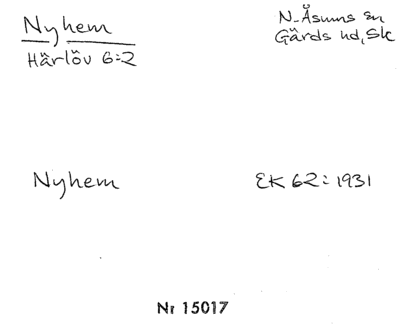 Nyhem
Härlöv 6:2
N-Åsums sn
Gärds hd, Sk
Nyhem
EK 62:1931
Nr 15017